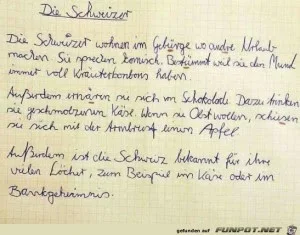 Die Schweizer
Die Schwizer wohnen im Gebürge wo andre Urlaub
machen. Sie sprechen komisch. Bestimmt weil sie den Mund
immer voll Kräuterbonbons haben.
Außerdem ernären sie sich von Schokolade. Dazu trinken
sie geschmolzenen Käse. Wenn sie Obst wollen, schiesen
sie sich mit der Armbrust einen Apfel
Außerdem ist die Schweiz bekannt für ihre
vielen Löcher, zum Beispiel im Käse oder im
Bankgeheimnis.
gefunden auf FUNPOT.NET